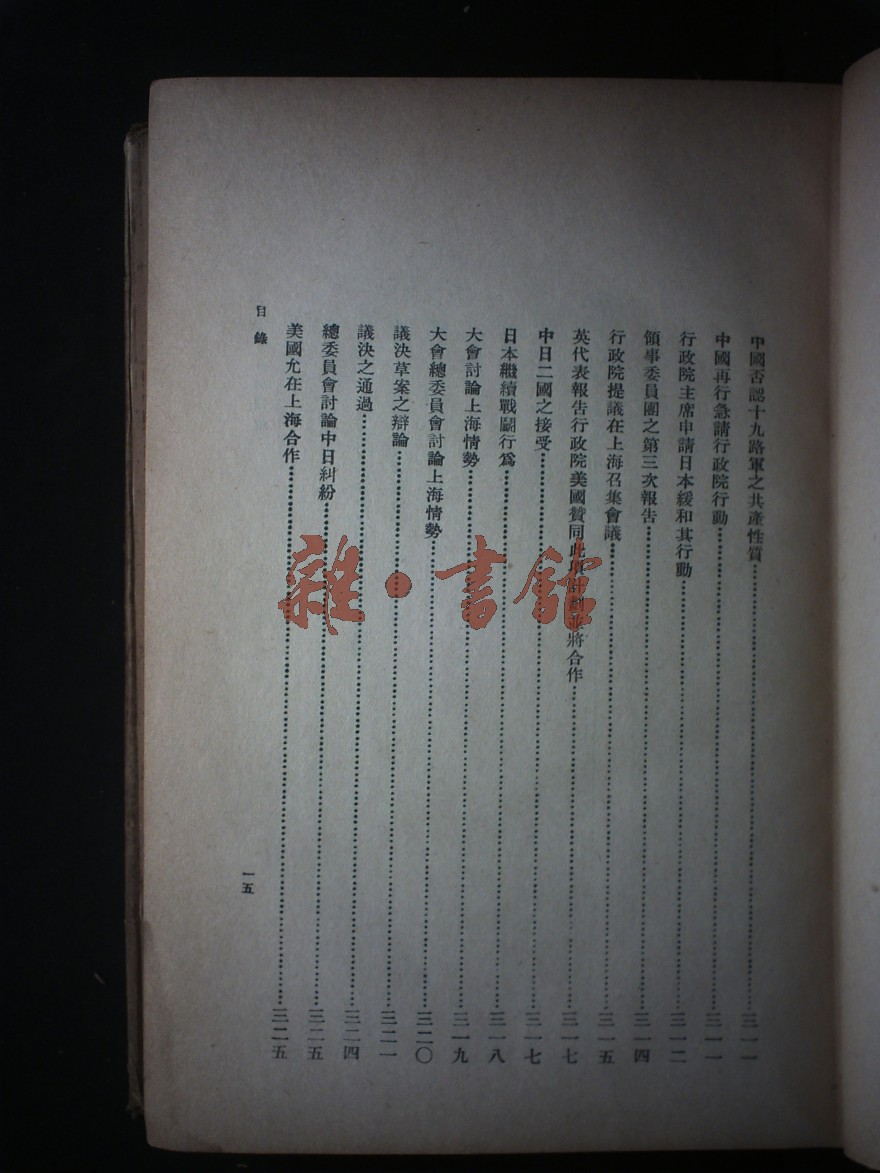 中國否認十九路軍之共產性質…………三一一
中國再行急請行政院行動…………三一一
行政院主席申請日本緩和其行動…………三一二
領事委員團之第三次報告…………三一四
行政院提議在上海召集會議…………三一五
英代表報告行政院美國贊同此項計劃並將合作…………三一七
中日二國之接受…………三一七
日本繼續戰鬭行爲…………三一八
大會討論上海情勢…………三一九
大會總委員會討論上海情勢…………三二〇
議決草案之辯論…………三二一
議決之通過…………三二四
總委員會討論中日糾紛…………三二五
美國允在上海合作…………三二五
目錄
一五
雜·書館